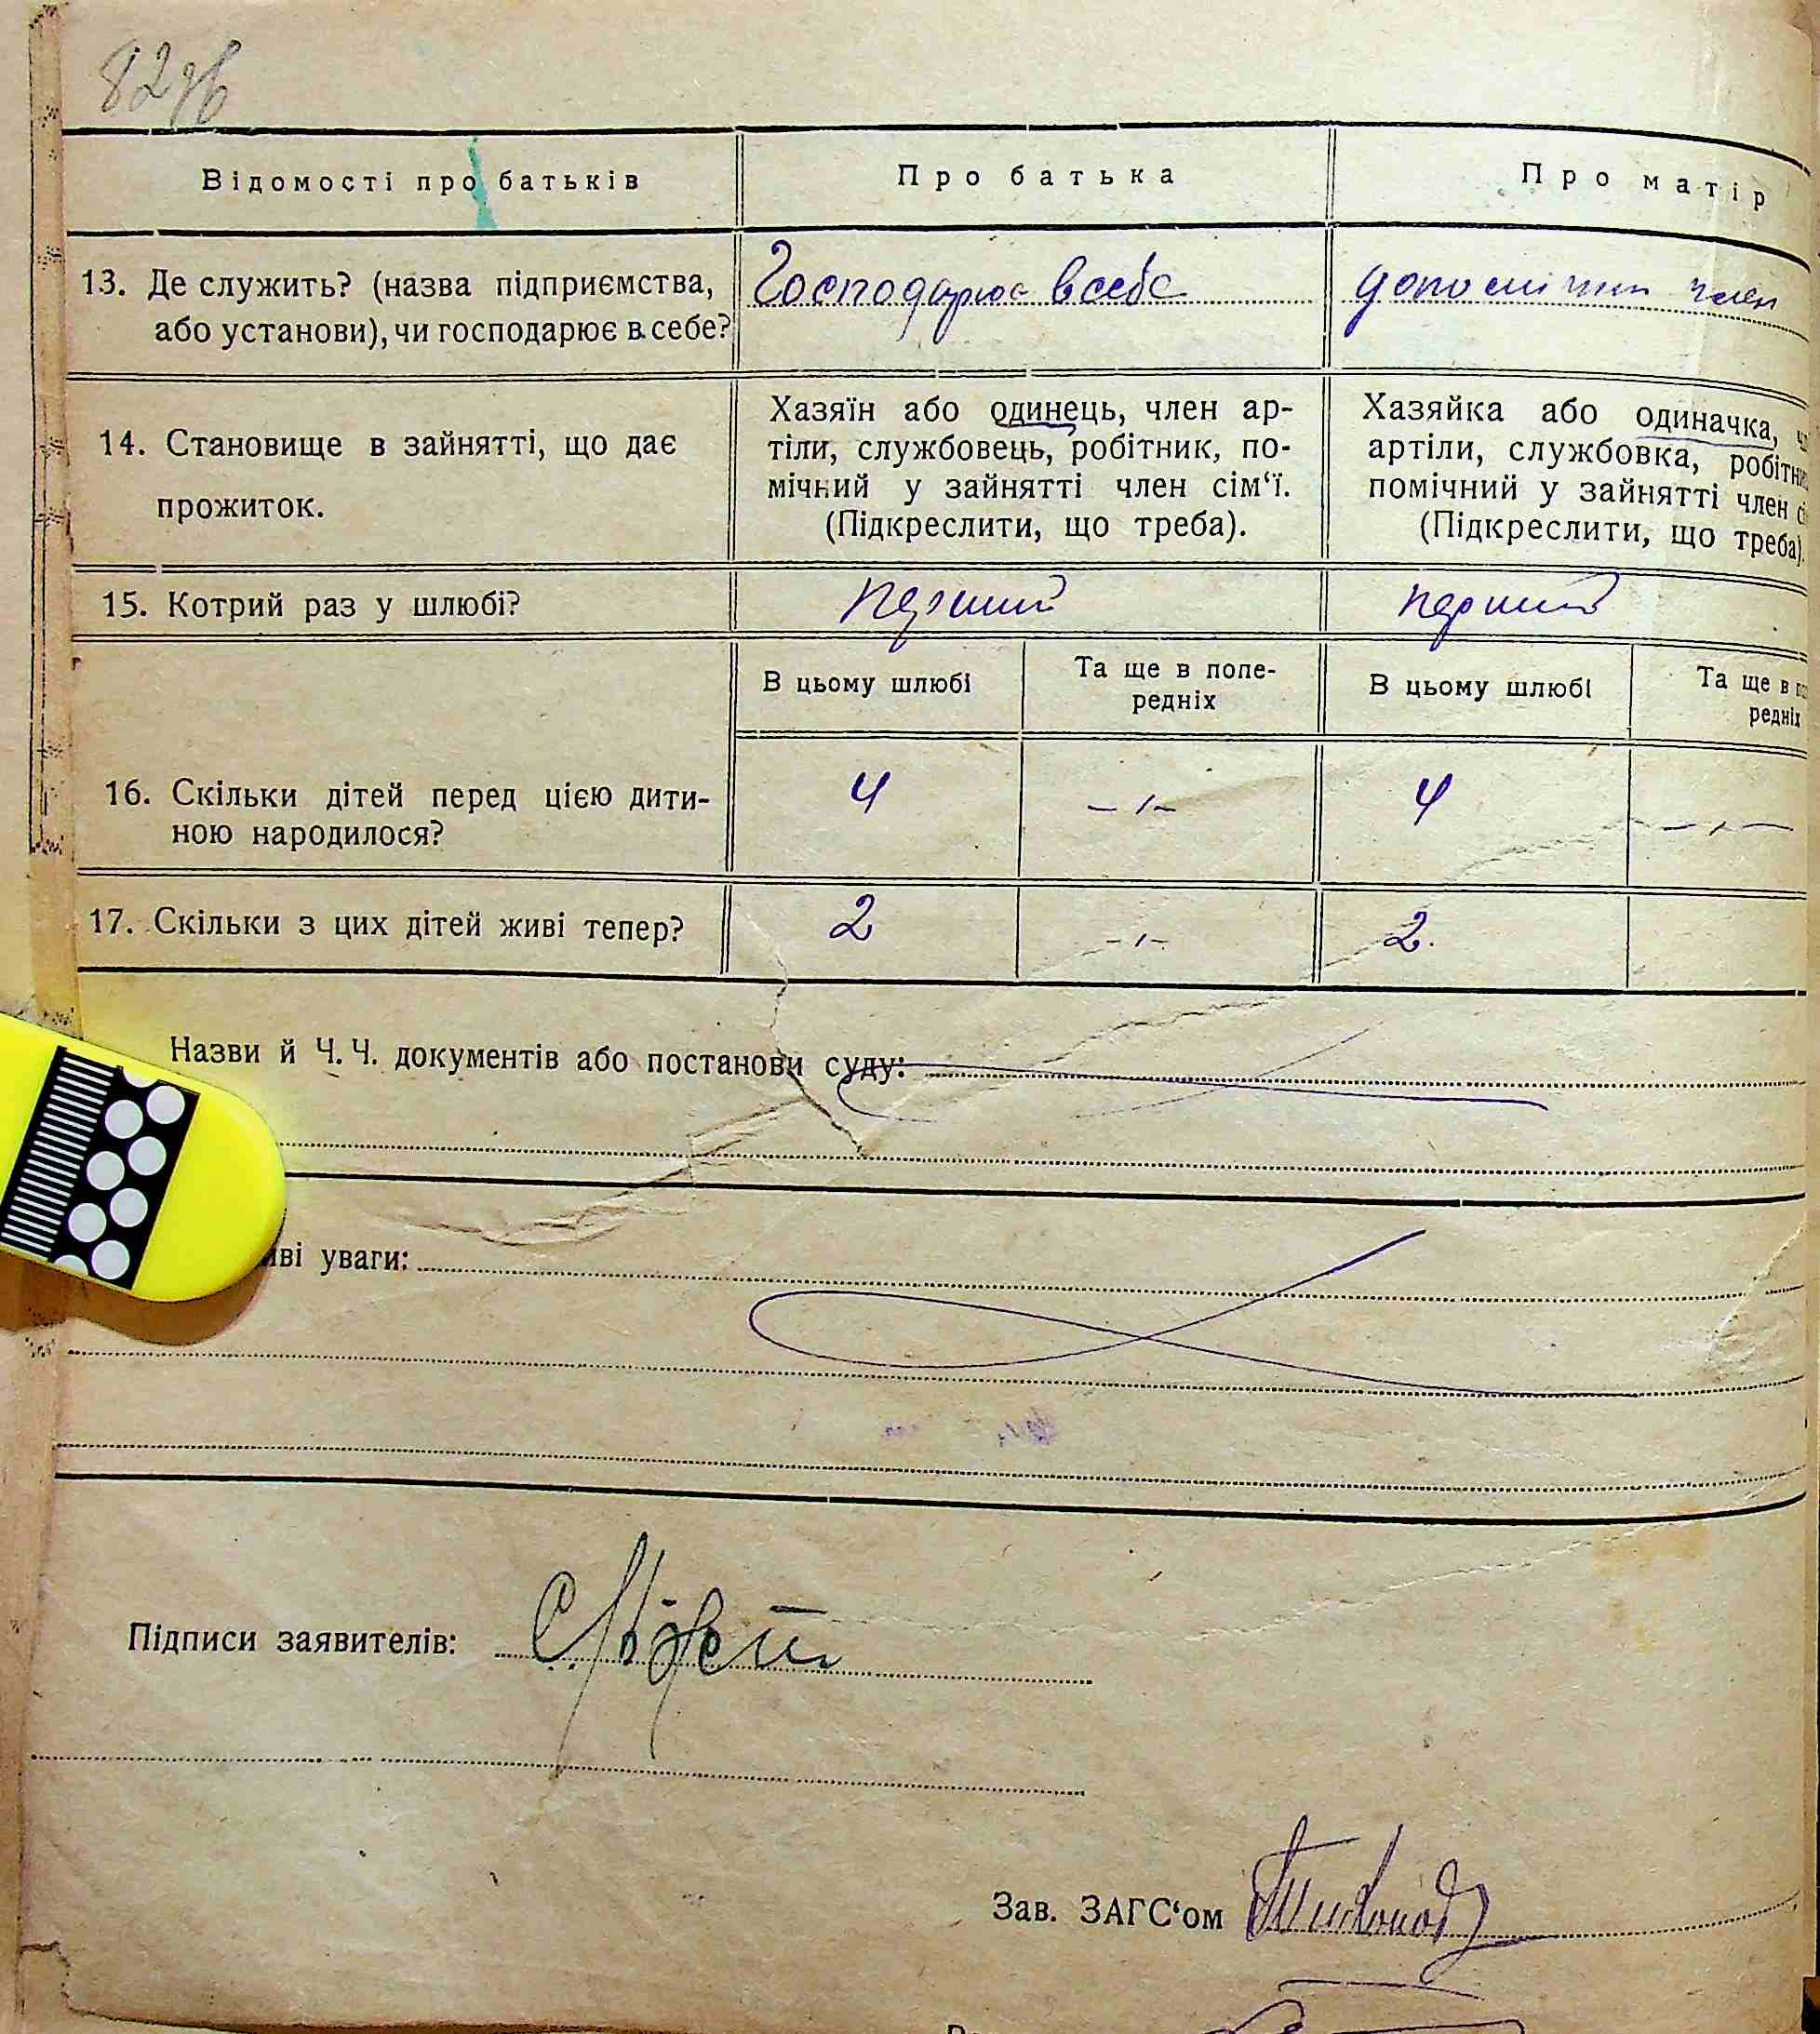 82зв
Відомості про батьків
Про батька
Про матір
13. Де служить? (назва підприємства,
або установи), чи господарює в себе?
Господарює в себе
допоміжни член
14. Становище в зайнятті, що дає
прожиток.
Хазяїн або одинець, член ар-
тіли, службовець, робітник, по-
мічний у зайнятті член сім‘ї.
(Підкреслити, що треба).
Хазяйка або одиначка, ч
артіли, службовка, робітни
помічний у зайнятті член сі
(Підкреслити, що треба).
15. Котрий раз у шлюбі?
перший
перший
В цьому шлюбі
Та ще в попе-
редніх
В цьому шлюбі
Та ще в по
редніх
16. Скільки дітей перед цією дити-
ною народилося?
4
-"-
4
-"-
17. Скільки з цих дітей живі тепер?
2
-"-
2.
Назви й Ч. Ч. документів або постанови суду:
иві уваги:
Підписи заявителів:
Зав. ЗАГС‘ом